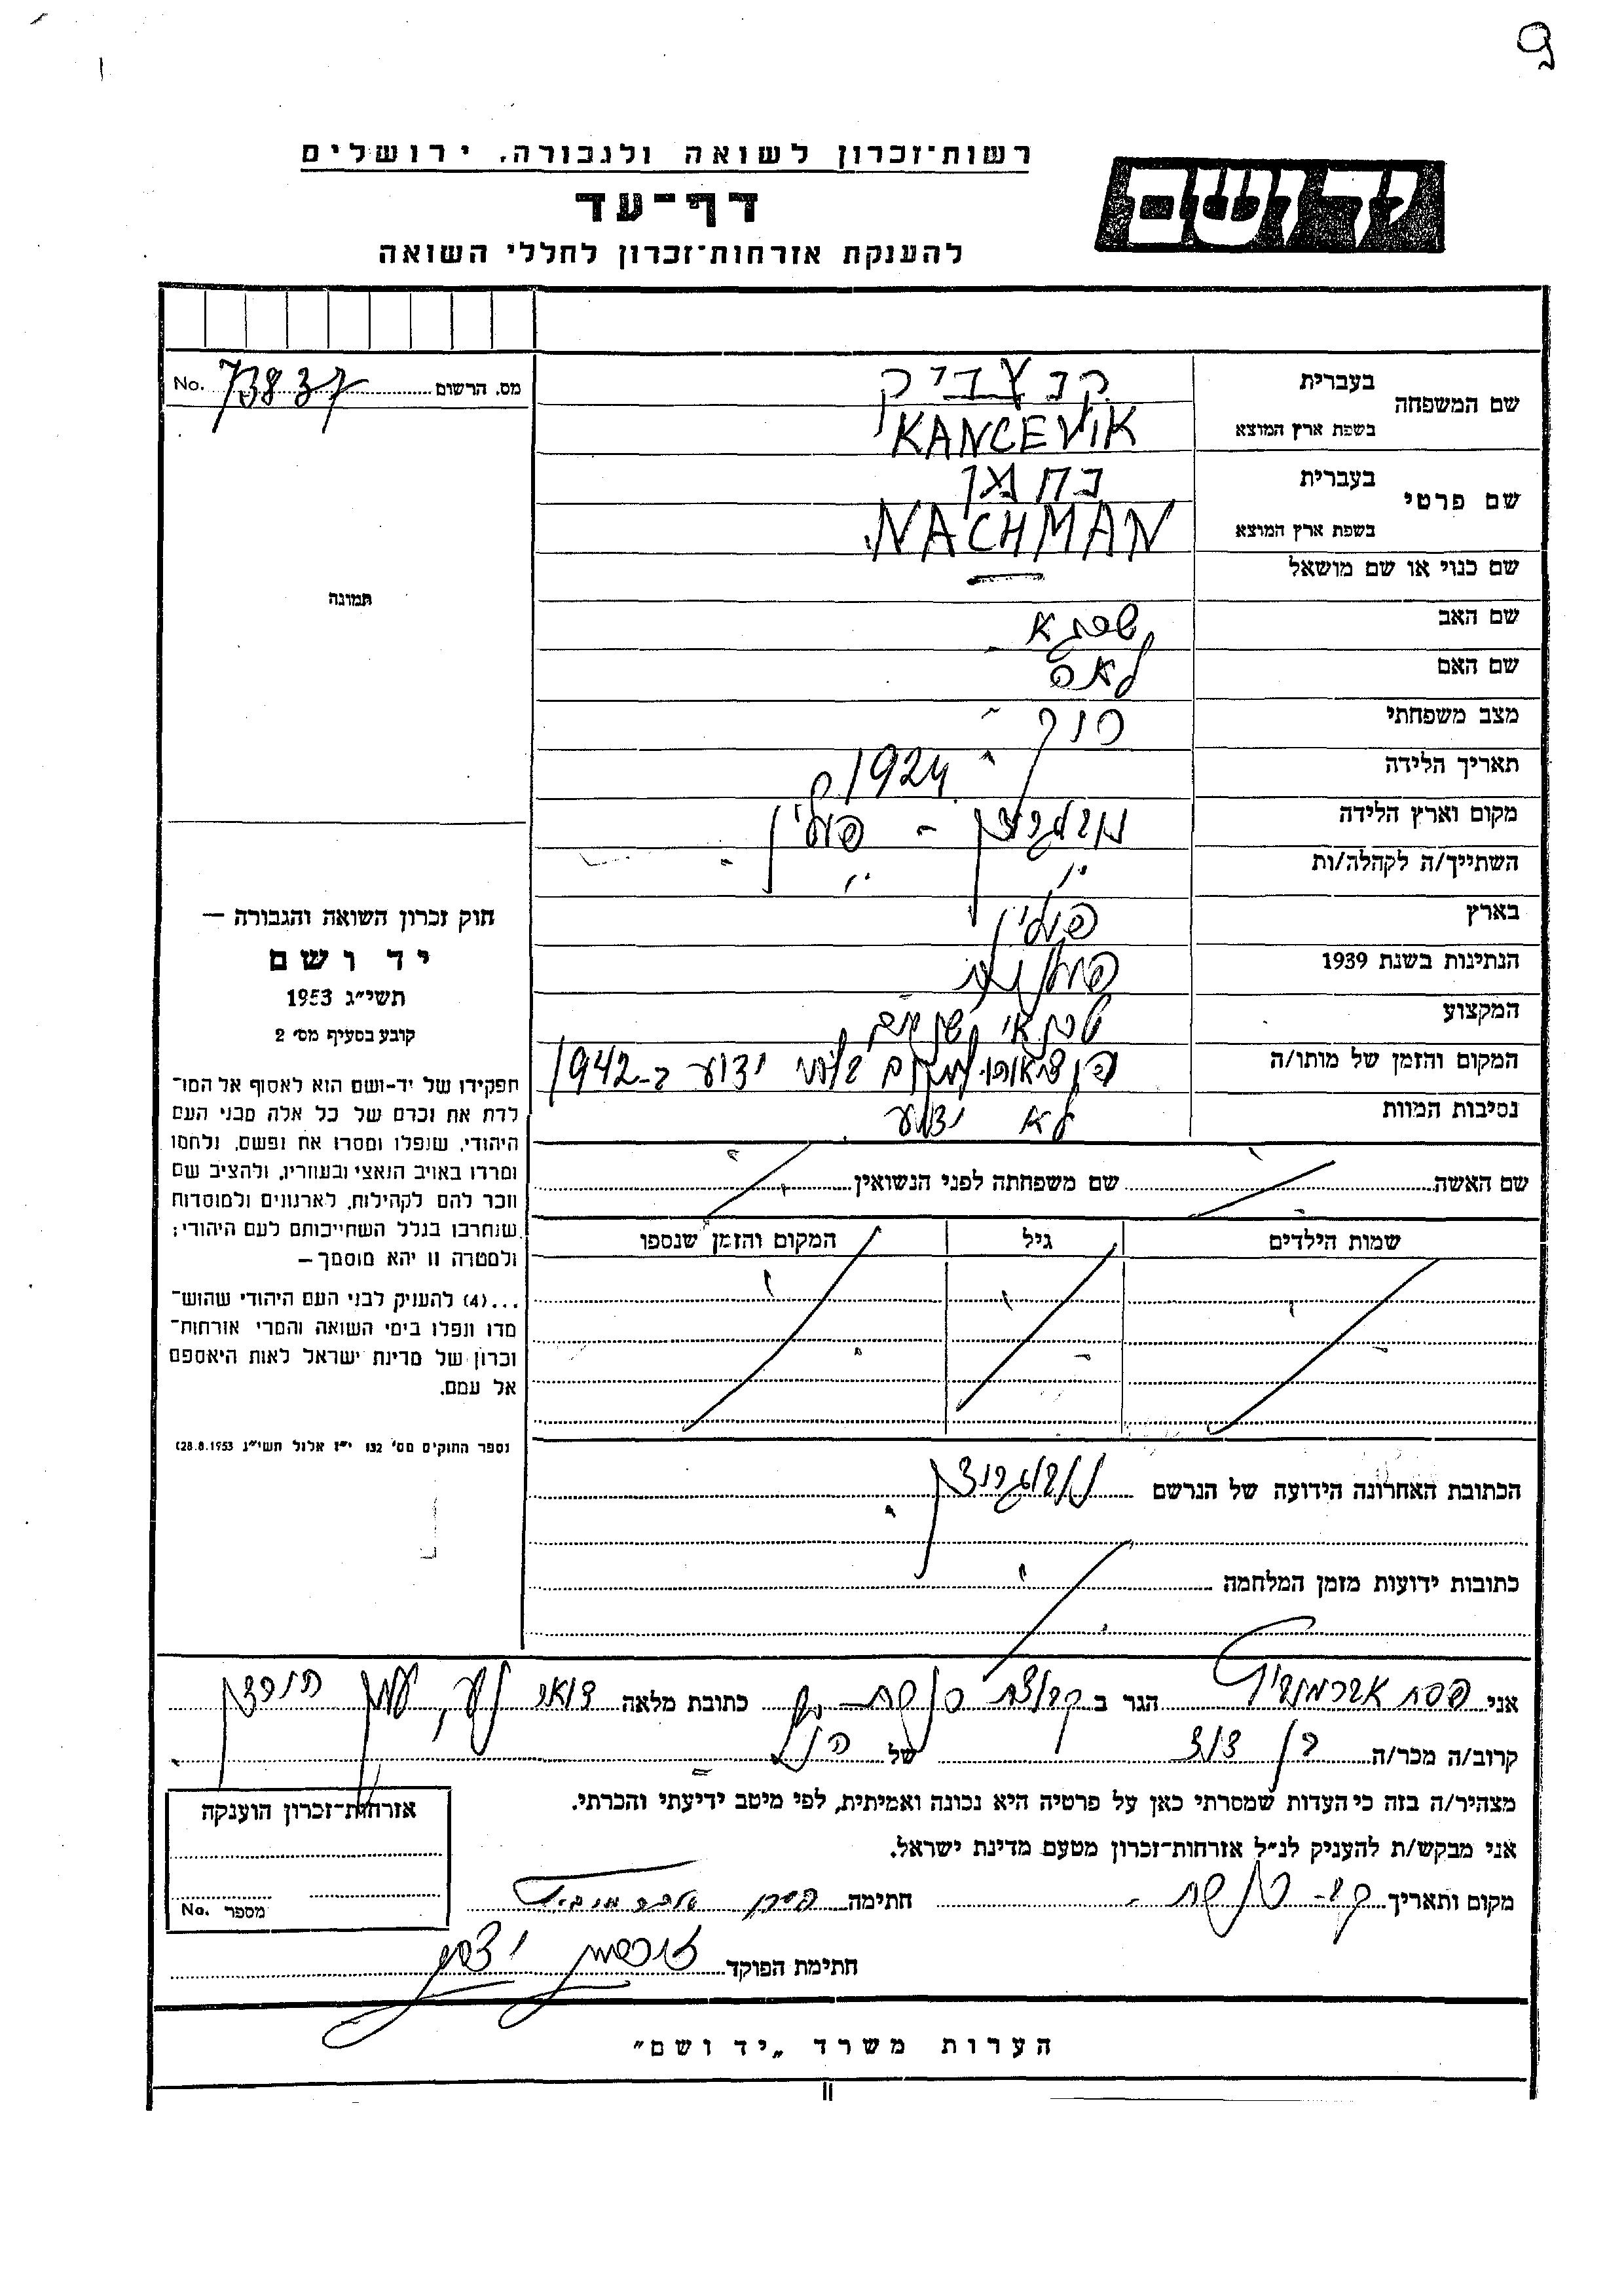 רשות־זכרון לשואה ולגבורה, ירושלים
יד ושם
דף־עד
להענקת אזרחות־זכרון לחללי השואה
מס. הרשום 73837 No.
שם המשפחה בעברית קנצביק
בשפת ארץ המוצא KANCEVIK
שם פרטי בעברית נחמן
בשפת ארץ המוצא NACHMAN
שם כנוי או שם מושאל —
תמונה
שם האב שרגא
שם האם לאה
מצב משפחתי רווק
תאריך הלידה 1924
מקום וארץ הלידה פולין
השתייך/ה לקהלה/ות
בארץ פולין
הנתינות בשנת 1939 פולנית
המקצוע
המקום והזמן של מותו/ה ידוע ב-1942
נסיבות המוות לא ידוע
שם האשה שם משפחתה לפני הנשואין
שמות הילדים גיל המקום והזמן שנספו
הכתובת האחרונה הידועה של הנרשם
כתובות ידועות מזמן המלחמה
חוק זכרון השואה והגבורה —
יד ושם
תשי״ג 1953
קובע בסעיף מס׳ 2
תפקידו של יד-ושם הוא לאסוף אל המו־
לדת את זכרם של כל אלה מבני העם
היהודי, שנפלו ומסרו את נפשם, נלחמו
ומרדו באויב הנאצי ובעוזריו, ולהציב שם
וזכר להם לקהילות, לארגונים ולמוסדות
שנחרבו בגלל השתייכותם לעם היהודי;
ולמטרה זו יהא מוסמך —
...(4) להעניק לבני העם היהודי שהוש־
מדו ונפלו בימי השואה והמרי אזרחות־
זכרון של מדינת ישראל לאות היאספם
אל עמם.
(ספר החוקים מס׳ 132 י״ז אלול תשי״ג 28.8.1953)
אני פסח אברמוביץ הגר ב קבוצת כתובת מלאה דואר נע,
קרוב/ה מכר/ה בן דוד של הנ״ל
מצהיר/ה בזה כי העדות שמסרתי כאן על פרטיה היא נכונה ואמיתית, לפי מיטב ידיעתי והכרתי.
אני מבקש/ת להעניק לנ״ל אזרחות־זכרון מטעם מדינת ישראל.
מקום ותאריך חתימה
חתימת הפוקד
אזרחות־זכרון הוענקה
מספר No.
הערות משרד „יד ושם״